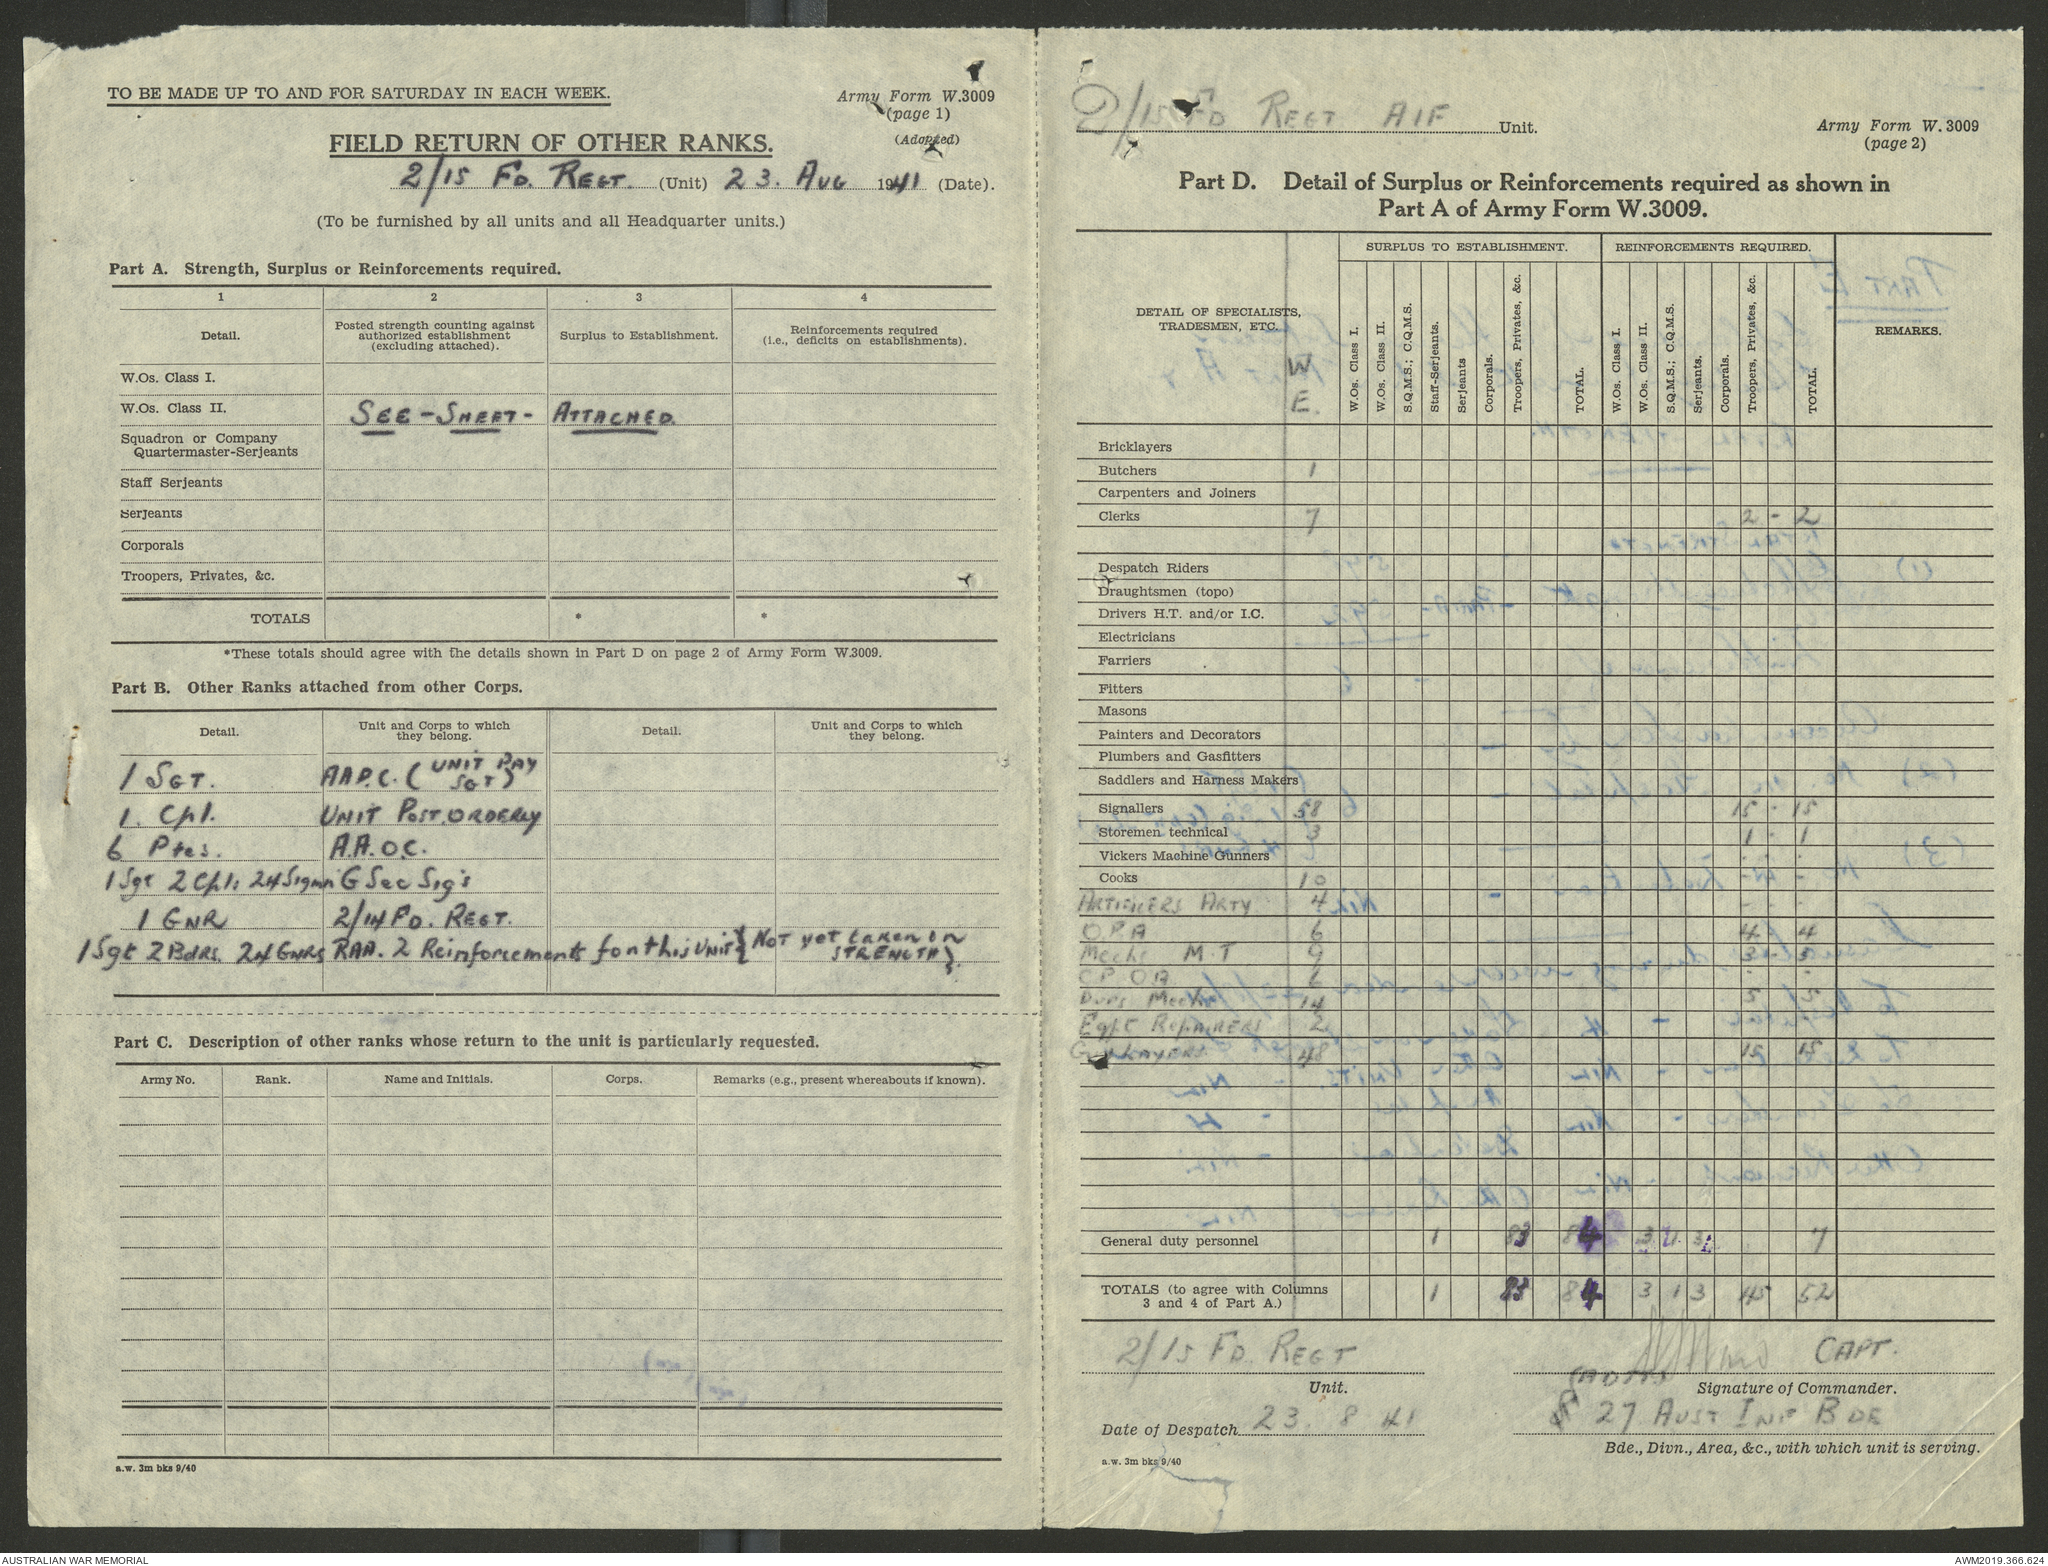 TO BE MADE UP TO AND FOR SATURDAY IN EACH WEEK.
Army Form W.3009
(page 1)
(Adapted)
FIELD RETURN OF OTHER RANKS.
2/15 FD. REGT. (Unit) 23. AUG 1941 (Date).
(To be furnished by all units and all Headquarter units.)
Part A. Strength, Surplus or Reinforcements required.
1 2 3 4
Detail. Posted strength counting against authorized establishment (excluding attached). Surplus to Establishment. Reinforcements required (i.e., deficits on establishments).
W.Os. Class I.
W.Os. Class II. SEE - SHEET - ATTACHED.
Squadron or Company
Quartermaster-Serjeants
Staff Serjeants
Serjeants
Corporals
Troopers, Privates, &c.
TOTALS * *
*These totals should agree with the details shown in Part D on page 2 of Army Form W.3009.
Part B. Other Ranks attached from other Corps.
Detail. Unit and Corps to which they belong. Detail. Unit and Corps to which they belong.
1 SGT. A.A.P.C. (UNIT PAY SGT)
1. Cpl. UNIT POST. ORDERLY
6 Ptes. A.A.O.C.
1 Sgt 2 Cpl: 24 Sigmn G Sec Sig's
1 GNR 2/14 FD. REGT.
1 Sgt 2 Bdrs. 24 GNRS RAA. 2 Reinforcements for this UNIT {NOT yet taken on STRENGTH}.
Part C. Description of other ranks whose return to the unit is particularly requested.
Army No. Rank. Name and Initials. Corps. Remarks (e.g., present whereabouts if known).
a.w. 3m bks 9/40
2/15 FD REGT AIF Unit.
Army Form W. 3009
(page 2)
Part D. Detail of Surplus or Reinforcements required as shown in
Part A of Army Form W.3009.
SURPLUS TO ESTABLISHMENT. REINFORCEMENTS REQUIRED.
DETAIL OF SPECIALISTS, TRADESMEN, ETC. W E. W.Os. Class I. W.Os. Class II. S.Q.M.S.; C.Q.M.S. Staff-Serjeants. Serjeants Corporals. Troopers, Privates, &c. TOTAL. W.Os. Class I. W.Os. Class II. S.Q.M.S.; C.Q.M.S. Serjeants. Corporals. Troopers, Privates, &c. TOTAL. REMARKS.
Bricklayers
Butchers 1
Carpenters and Joiners
Clerks 7 2 - 2
Despatch Riders
Draughtsmen (topo)
Drivers H.T. and/or I.C.
Electricians
Farriers
Fitters
Masons
Painters and Decorators
Plumbers and Gasfitters
Saddlers and Harness Makers
Signallers 58 15 - 15
Storemen technical 3 1 - 1
Vickers Machine Gunners
Cooks 10
ARTIFICERS ARTY 4
O.P.A 6 4 4
Mechs M.T 9 3 - 3
C.P.O.A 6
Dvrs Mech 14 5 5
Eqpt REPAIRERS 2
GUNLAYERS 48 15 15
General duty personnel 1 83 84 3 1 3 7
TOTALS (to agree with Columns
3 and 4 of Part A.) 1 83 84 3 1 3 45 52
2/15 FD. REGT
Unit.
CAPT.
Signature of Commander.
Date of Despatch 23. 8 41
27 AUST INF BDE
Bde., Divn., Area, &c., with which unit is serving.
a.w. 3m bks 9/40
AUSTRALIAN WAR MEMORIAL
AWM2019.366.624